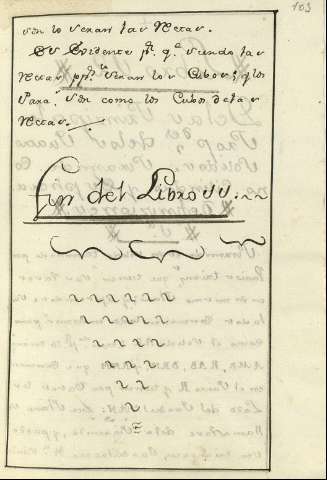 103
son lo seran las Rectas.
Es Evidente pr. qe. siendo las
Rectas pples. seran los Cubos; y los
Para. son como los Cubos de las
Rectas.
Fin del Libro